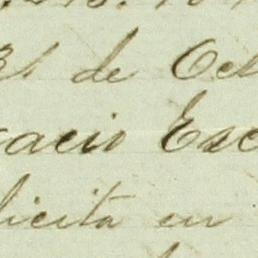 31 de Oct
acio Esc
licita en